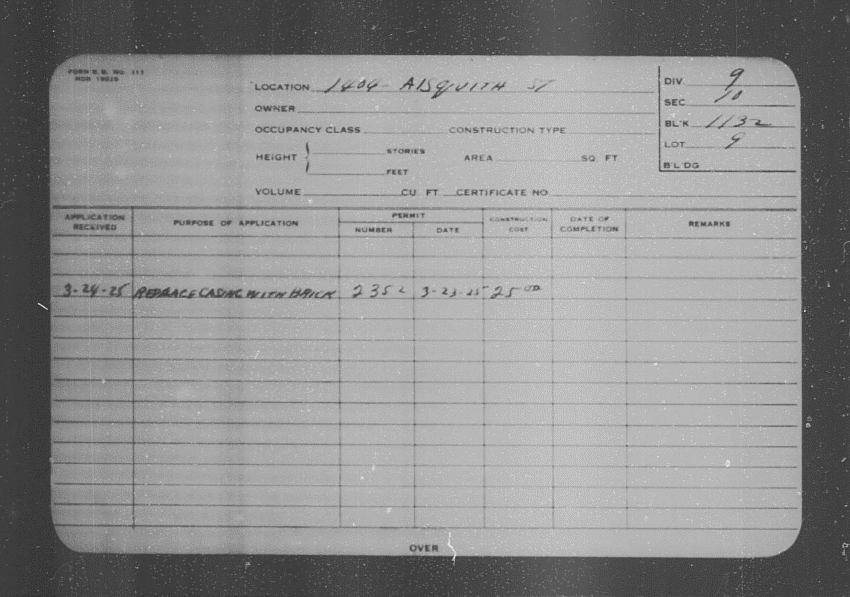 FORM B.B. No. 111
LOCATION 1404- AISQUITH ST
DIV 9
OWNER
SEC 10
OCCUPANCY CLASS CONSTRUCTION TYPE
BL'K 1132
LOT 9
HEIGHT { STORIES AREA SQ FT
FEET
B'L'DG
VOLUME CU FT CERTIFICATE NO
APPLICATION RECEIVED PURPOSE OF APPLICATION PERMIT NUMBER DATE CONSTRUCTION COST DATE OF COMPLETION REMARKS
3-24-25 REPLACE CASING WITH BRICK 2352 3-23-25 25 00
OVER